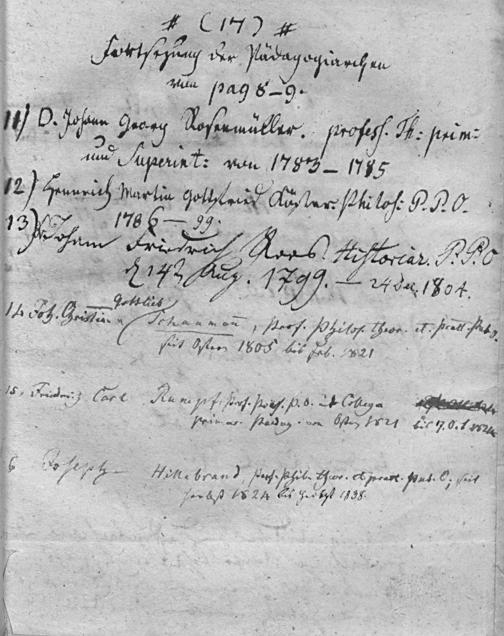 # (17) #
Fortsezung der Pädagogiarchen
von pag 8-9.
11) D. Johann Georg Rosenmüller. profess. Th: prim:
und Superint: von 1783-1785
12) Hennrich Martin Gottfried Köster. Philos: P. P. O.
1786-99.
13) Johann Friedrich Roos. Historiar. P. P. O
d 14t Aug. 1799. - 24 Dec. 1804.
14 Joh. Christian Gottlieb Schaumann, Prof. Philos. theor. et pract. Pub.
seit Ostern 1805 bis Feb. 1821
15, Friedrich Carl Rumpf, Prof. P. O. Collega
primar. Pädag. von Ostern 1821 bis 1824
6 Joseph Hillebrand, Prof. Phil. theor. et pract. Pub. O, seit
Herbst 1824 bis Herbst 1838.